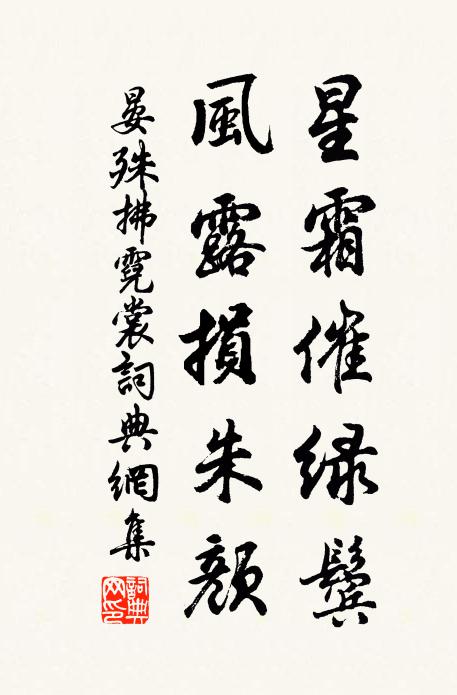 星霜催绿鬓
風露損朱顏
晏殊拂霓裳詞典網集
詞典網印